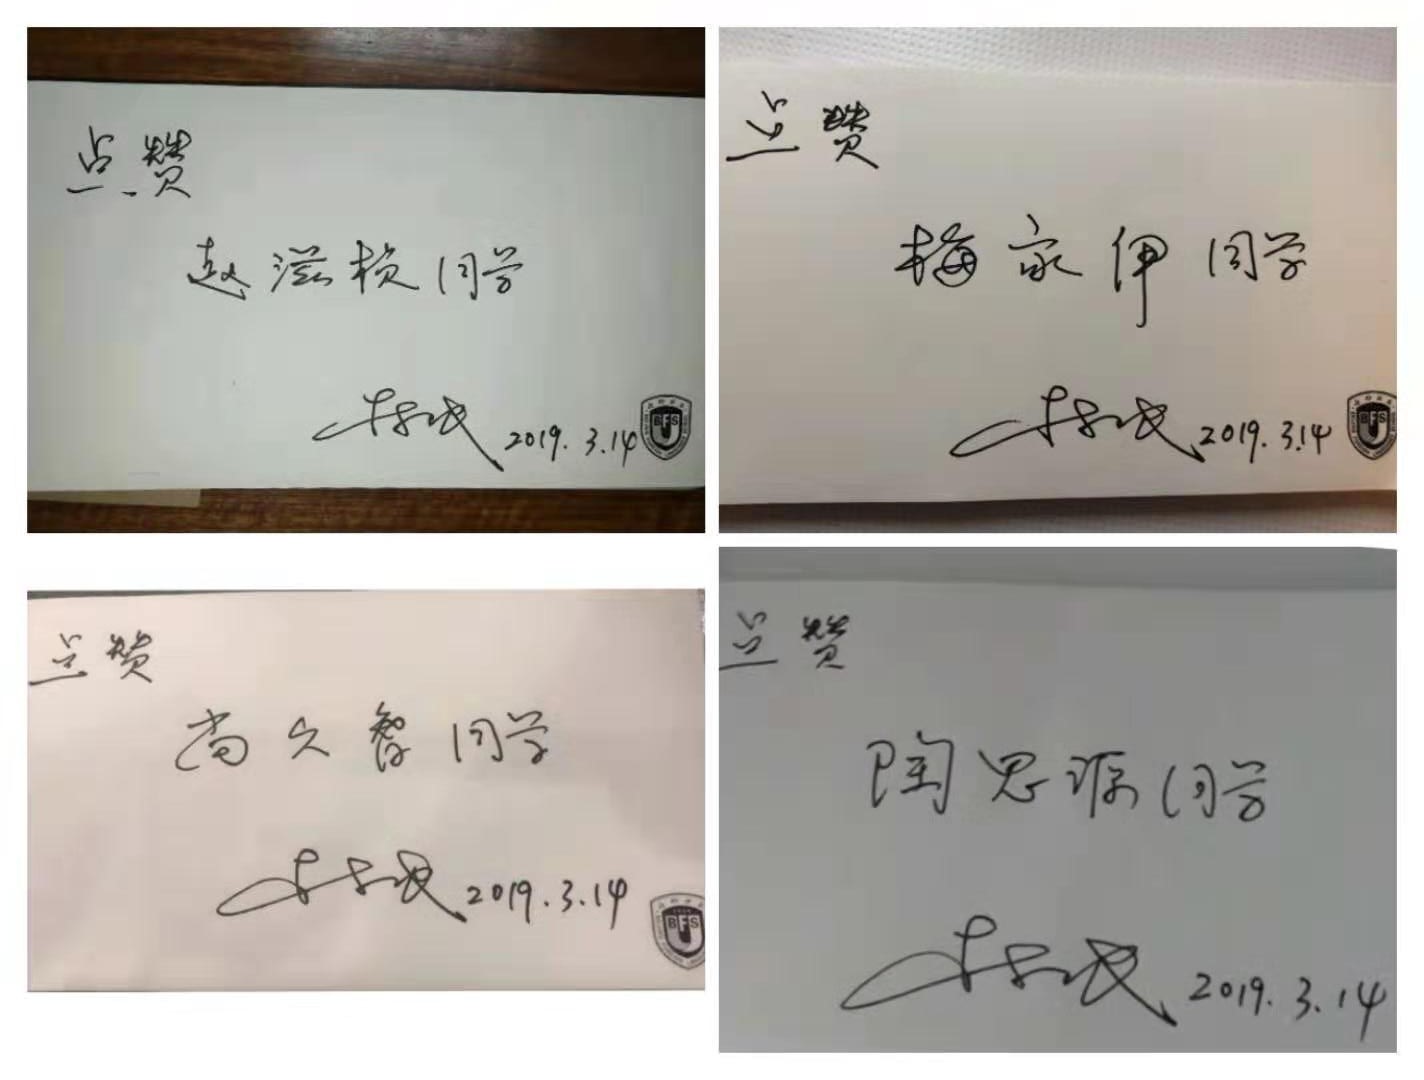 点赞
赵滋桢同学
2019.3.14
BFS
点赞
梅家伊同学
2019.3.14
BFS
点赞
尚久智同学
2019.3.14
BFS
点赞
陶思源同学
2019.3.14